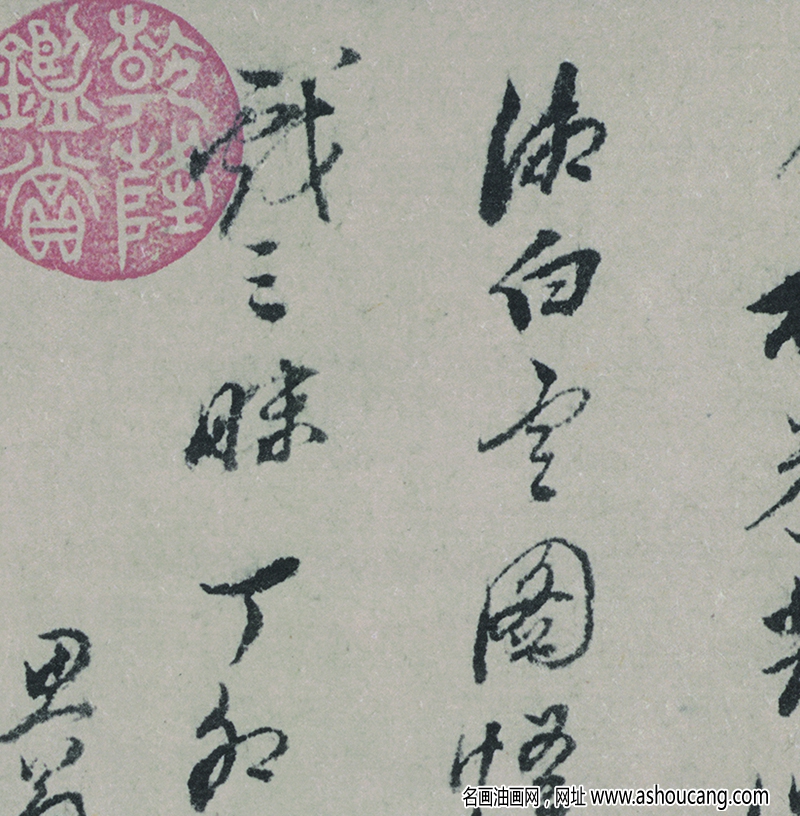 湘白雲圖悟
戲三昧丁卯
思翁
乾隆鑑賞
名画油画网，网址 www.ashoucang.com